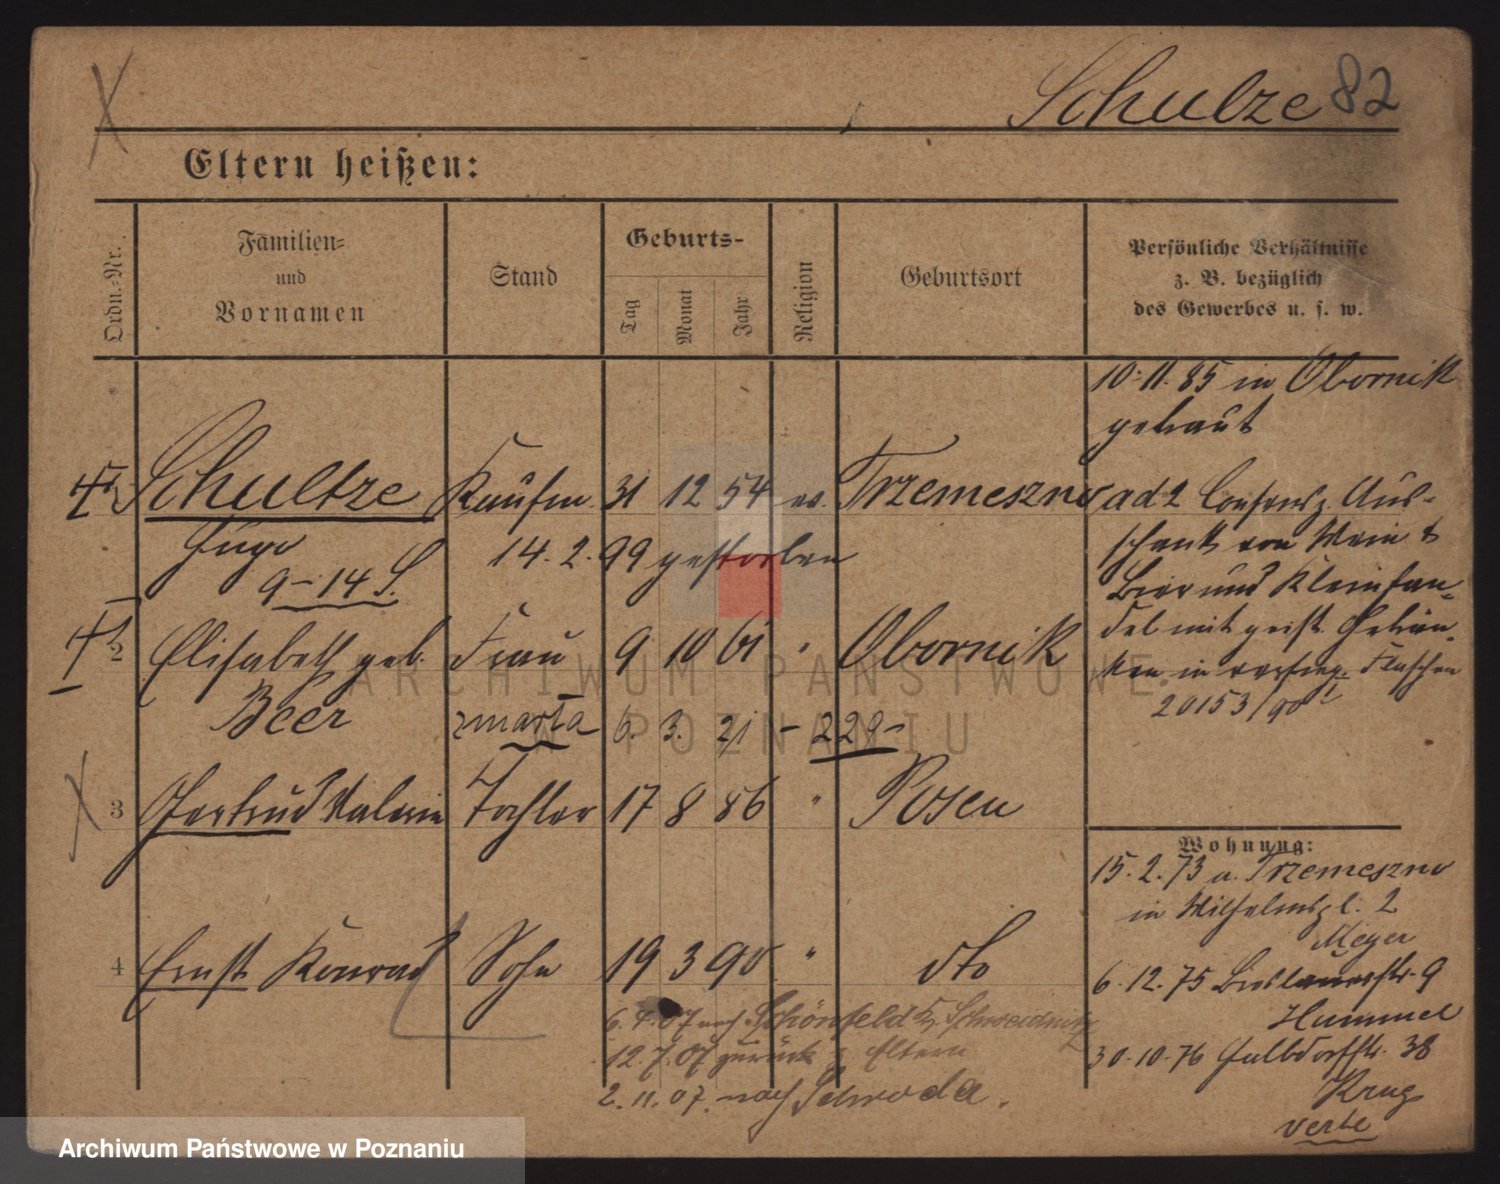 Schulze 82
Eltern heißen:
Ordn.-Nr.
Familien-
und
Vornamen
Stand
Geburts-
Tag
Monat
Jahr
Religion
Geburtsort
Persönliche Verhältnisse
z. B. bezüglich
des Gewerbes u. s. w.
10.11.85 in Obornik
getraut
Schultze Kaufm. 31 12 54 ev. Trzemeszno
Hugo 14.2.99 gestorben
9-14 S.
ad 2 Consens z. Aus-
schank von Wein &
Bier und Kleinhan-
del mit geist. Geträn-
ken in versieg. Flaschen
20153/90
2 Elisabeth geb. Frau 9 10 61 " Obornik
Beer zmarła 6. 3. 21 - 229-
3 Gertrud Valerie Tochter 17 8 86 " Posen
4 Ernst Konrad Sohn 19 3 90 " dto
6.4.07 nach Schönfeld Kr. Schweidnitz
12.7.07 zurück z. Eltern
2.11.07. nach Schroda.
Wohnung:
15.2.73 a. Trzemeszno
in Wilhelmspl. 2
Meyer
6.12.75 Breslauerstr. 9
Hummel
30.10.76 Halbdorfstr. 38
Krug
verte
ARCHIWUM PAŃSTWOWE
W POZNANIU
Archiwum Państwowe w Poznaniu